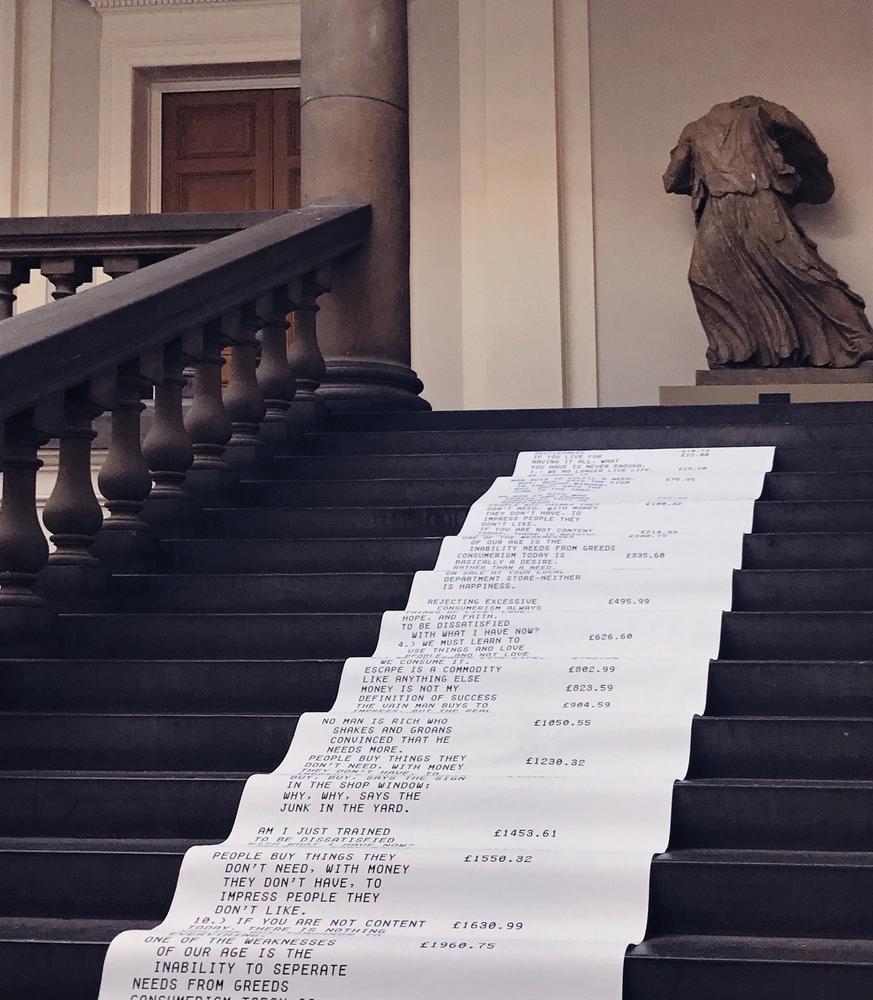 £10.79
IF YOU LIVE FOR £12.00
HAVING IT ALL, WHAT
YOU HAVE IS NEVER ENOUGH.
4.) WE NO LONGER LIVE LIFE. £15.20
£75.95
£100.32
DON'T NEED, WITH MONEY
THEY DON'T HAVE, TO
IMPRESS PEOPLE THEY
DON'T LIKE.
IF YOU ARE NOT CONTENT £214.99
TODAY, THERE IS NOTHING
ONE OF THE WEAKNESSES
OF OUR AGE IS THE
INABILITY NEEDS FROM GREEDS
CONSUMERISM TODAY IS £335.60
BASICALLY A DESIRE.
RATHER THAN A NEED.
ON SALE AT YOUR LOCAL
DEPARTMENT STORE-NEITHER
IS HAPPINESS.
REJECTING EXCESSIVE £495.99
CONSUMERISM ALWAYS
HOPE, AND FAITH.
TO BE DISSATISFIED
WITH WHAT I HAVE NOW? £626.60
4.) WE MUST LEARN TO
USE THINGS AND LOVE
PEOPLE, AND NOT LOVE
WE CONSUME IT.
ESCAPE IS A COMMODITY £802.99
LIKE ANYTHING ELSE
MONEY IS NOT MY £823.59
DEFINITION OF SUCCESS
THE VAIN MAN BUYS TO £904.59
IMPRESS, BUT THE REAL
NO MAN IS RICH WHO £1050.55
SHAKES AND GROANS
CONVINCED THAT HE
NEEDS MORE.
PEOPLE BUY THINGS THEY £1230.32
DON'T NEED, WITH MONEY
THEY DON'T HAVE, TO
BUY, BUY, SAYS THE SIGN
IN THE SHOP WINDOW;
WHY, WHY, SAYS THE
JUNK IN THE YARD.
AM I JUST TRAINED £1453.61
TO BE DISSATISFIED
WITH WHAT I HAVE NOW?
PEOPLE BUY THINGS THEY £1550.32
DON'T NEED, WITH MONEY
THEY DON'T HAVE, TO
IMPRESS PEOPLE THEY
DON'T LIKE.
10.) IF YOU ARE NOT CONTENT £1630.99
TODAY, THERE IS NOTHING
ONE OF THE WEAKNESSES £1960.75
OF OUR AGE IS THE
INABILITY TO SEPERATE
NEEDS FROM GREEDS
CONSUMERISM TODAY IS